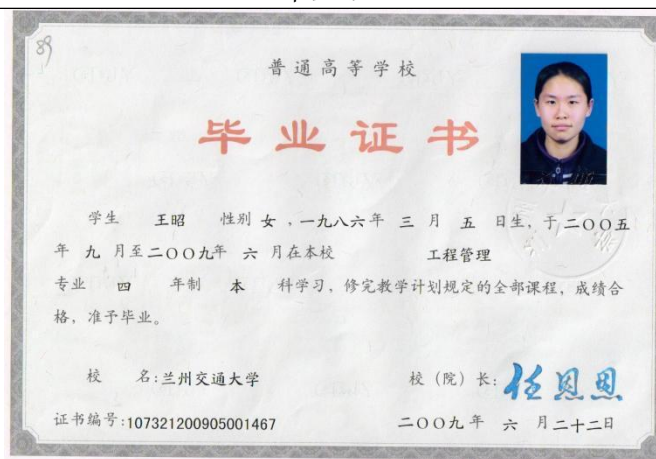 89
普通高等学校
毕业证书
学生 王昭 性别 女 ，一九八六年 三 月 五 日生，于二〇〇五
年 九 月至二〇〇九年 六 月在本校 工程管理
专业 四 年制 本 科学习，修完教学计划规定的全部课程，成绩合
格，准予毕业。
校 名：兰州交通大学 校（院）长：任恩恩
证书编号：107321200905001467 二〇〇九年 六 月二十二日